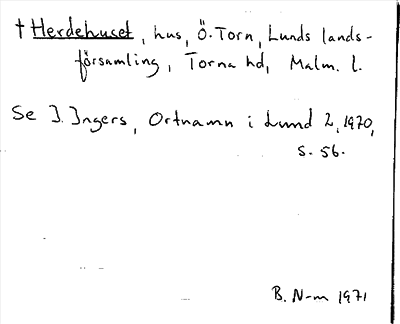 † Herdehuset, hus, Ö. Torn, Lunds lands-
församling, Torna hd, Malm. l.
Se I. Ingers, Ortnamn i Lund 2, 1970,
s. 56.
B. N-m 1971